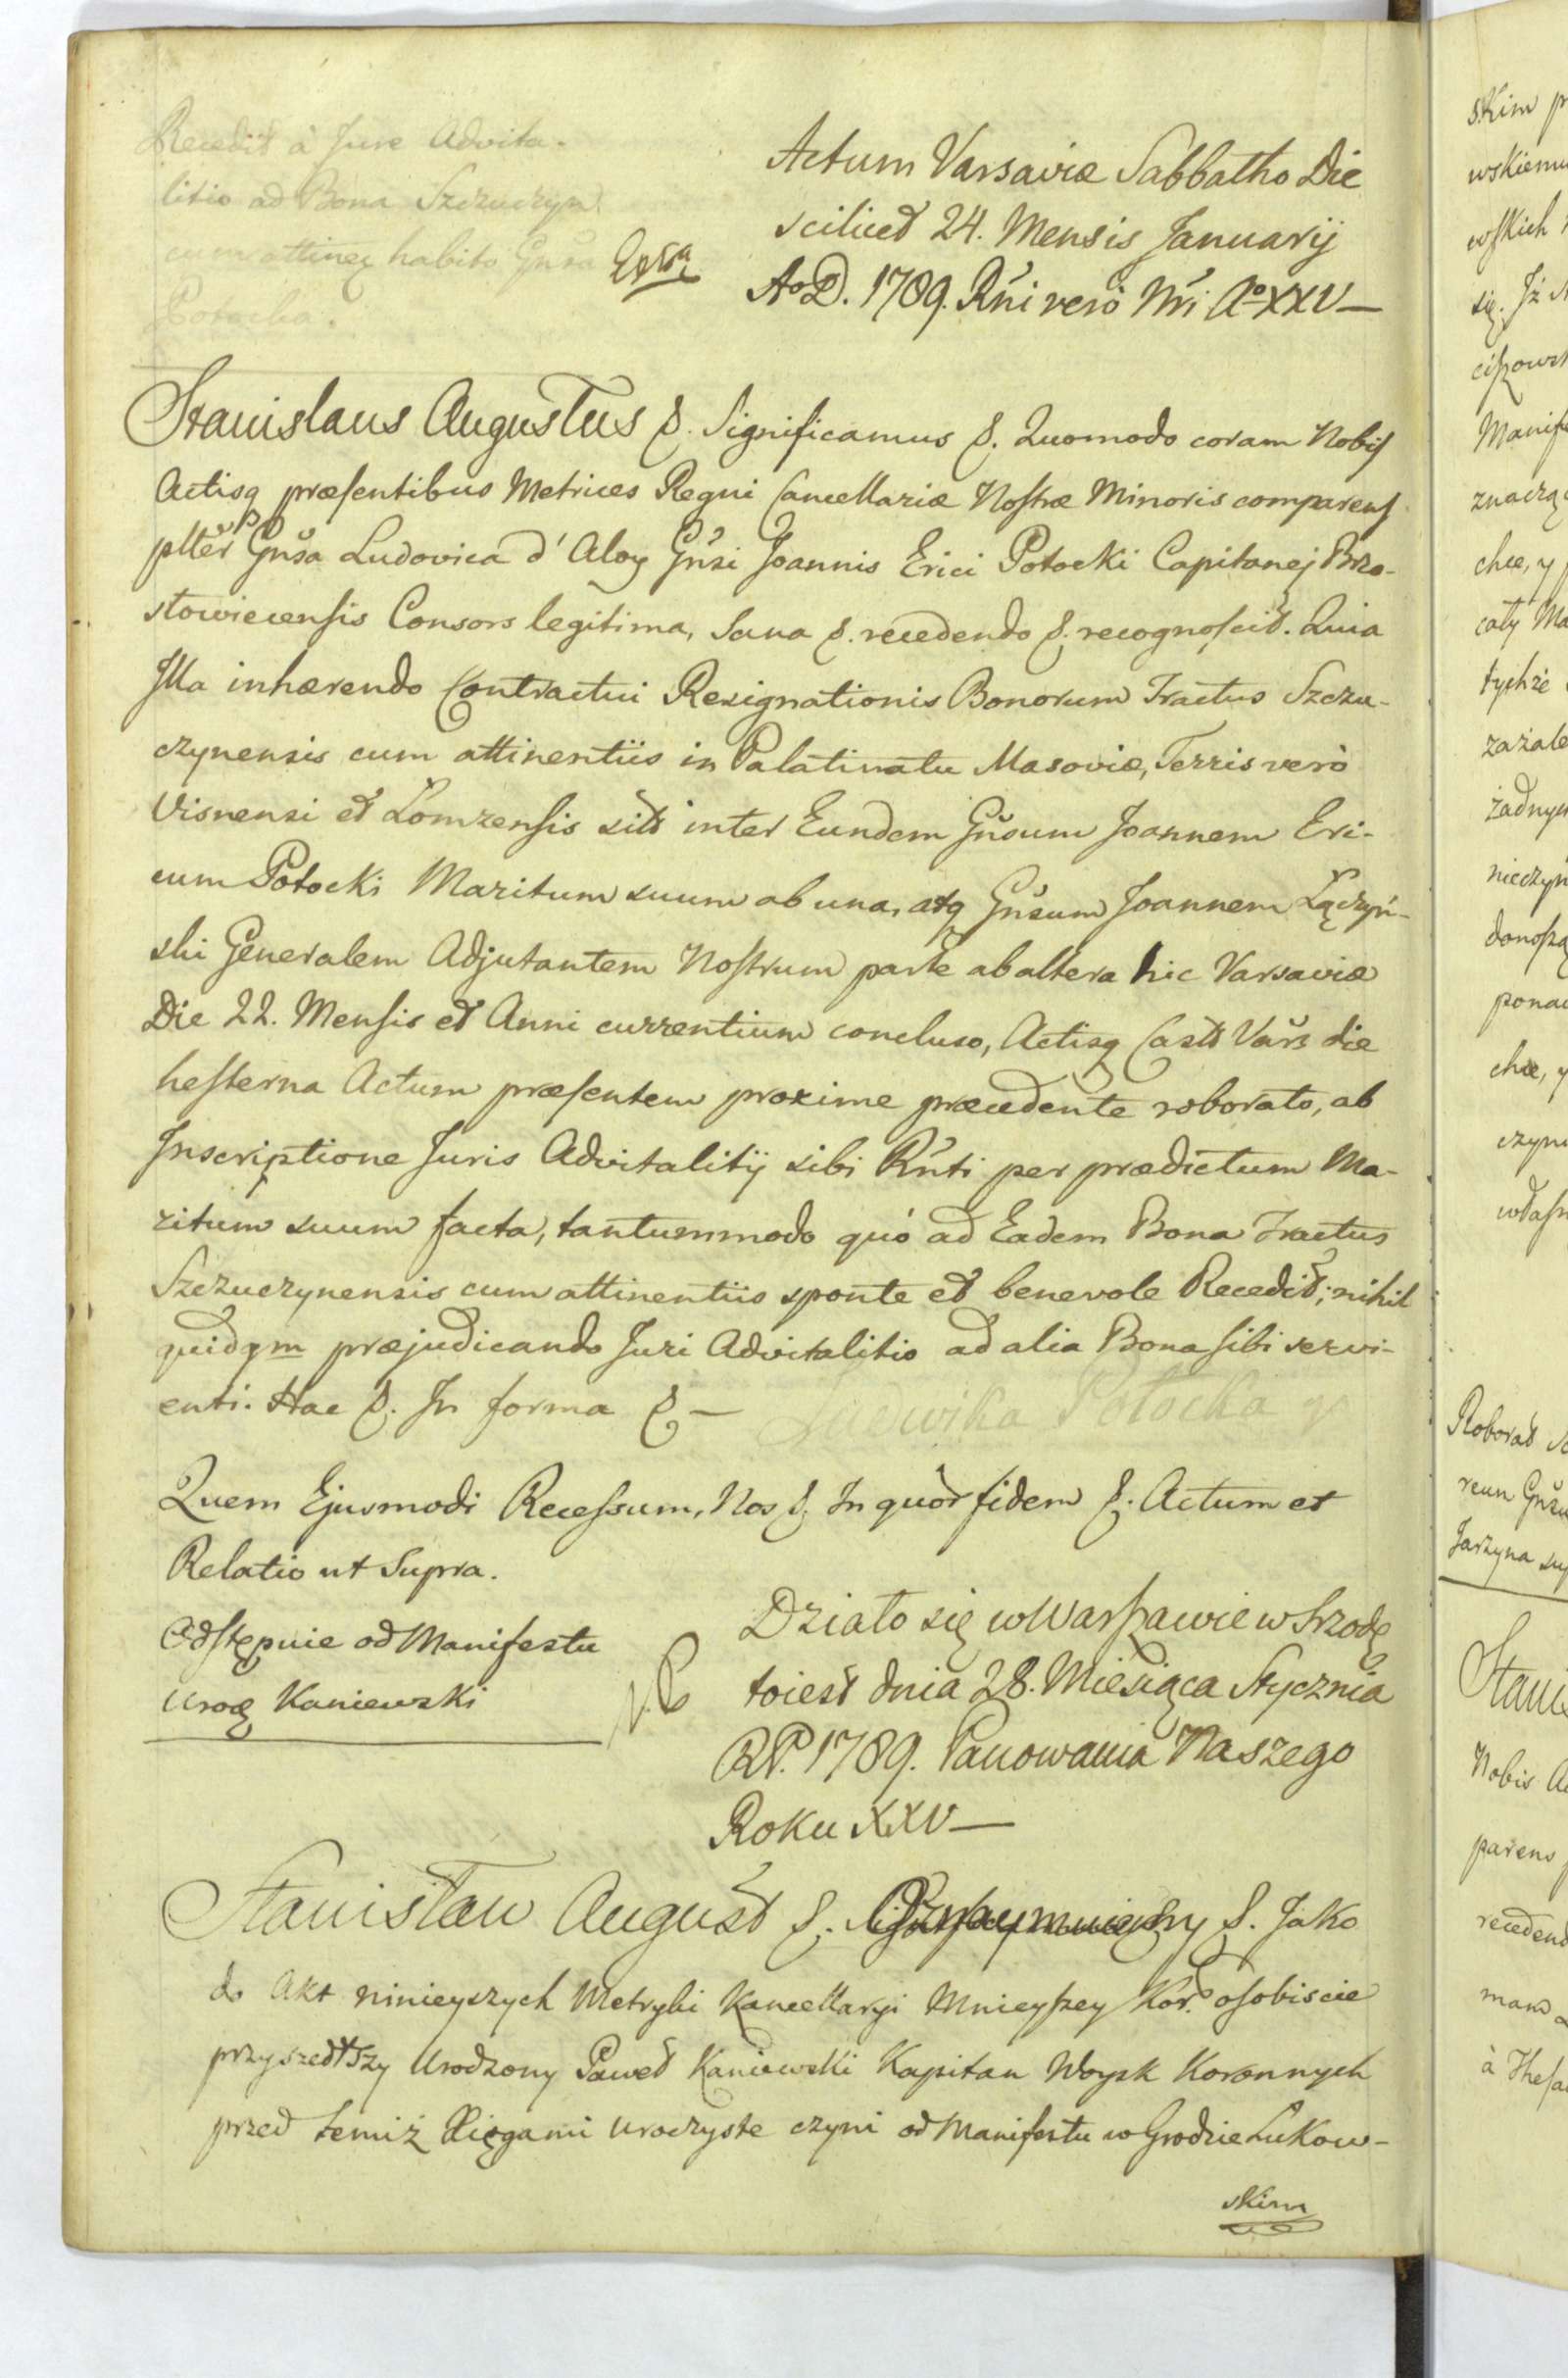 Recedit à Jure Advita-
litio ad Bona Szczuczyn
cum attinen habito Gnsa
Potocka.
Extra
Actum Varsaviæ Sabbatho Die
scilicet 24. Mensis Januarij
AoD. 1789. Rńi verò Nrí Ao XXV—
Stanislaus Augustus &. Significamus &. Quomodo coram Nobis
Actisq præsentibus Metrices Regni Cancellariæ Nostræ Minoris comparens
plter Gnsa Ludovica d'Aloy Gnsi Joannis Erici Potocki Capitanej Brzo-
stowiecensis Consors legitima, Sana &. recedendo &. recognoscit. Quia
Illa inhærendo Contractui Resignationis Bonorum Tractus Szczu-
czynensis cum attinentiis in Palatinatu Masoviæ, Terris verò
Visnensi et Lomzensis sits inter Eundem Gnsum Joannem Eri-
cum Potocki Maritum suum ab una, atq Gnsum Joannem Łączyń-
ski Generalem Adjutantem Nostrum parte ab altera hic Varsaviæ
Die 22. Mensis et Anni currentium concluso, Actisq Casts Vars die
hesterna Actum præsentem proxime præcedente roborato, ab
Inscriptione Juris Advitalitij sibi Rńti per prædictum Ma-
ritum suum facta, tantummodo quò ad Eadem Bona Tractus
Szczuczynensis cum attinentiis sponte et benevole Recedit; nihil
quidqm præjudicando Juri Advitalitio ad alia Bona sibi servi-
enti. Hac &. In forma &—
Ludwika Potocka
Quem Ejusmodi Recessum, Nos &. In quòr fidem &. Actum et
Relatio ut Supra.
Odstępuie od Manifestu
Urog Kaniewski
Działo się w Warszawie w Srzodę
toiest dnia 28. Miesiąca Stycznia
RP. 1789. Panowania Naszego
Roku XXV—
Stanisław August &. &. Jako
do Akt ninieyszych Metryki Kancellaryi Mnieyszey Kor. osobiscie
przyszedłszy Urodzony Paweł Kaniewski Kapitan Woysk Koronnych
przed temiż Xięgami uroczyste czyni od Manifestu w Grodzie Łukow-
skim